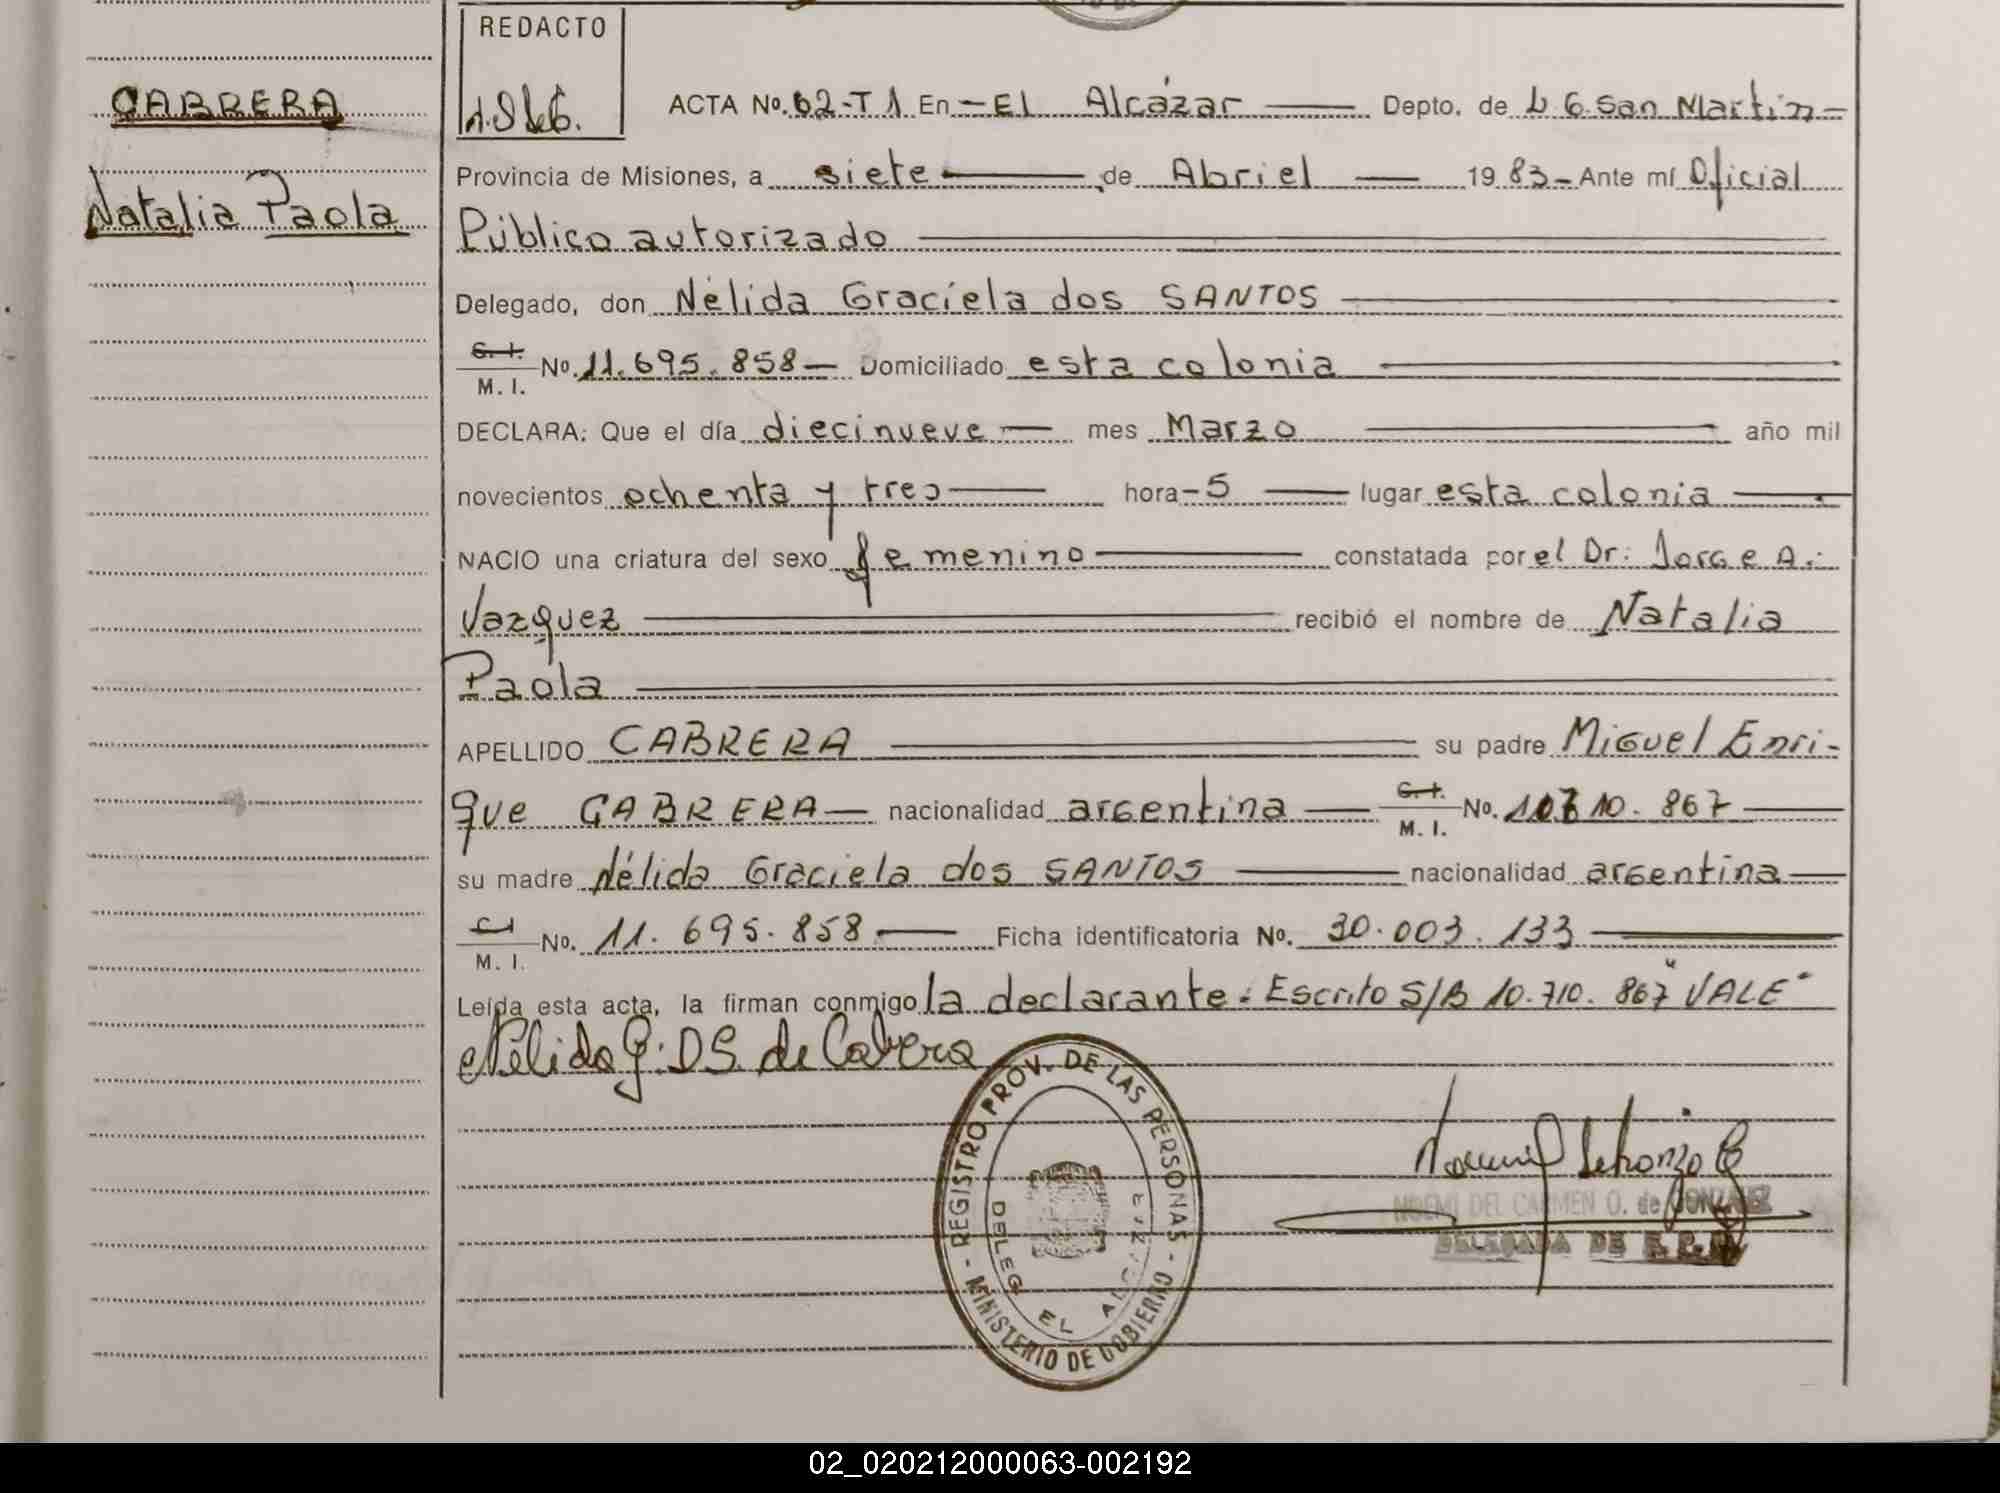 REDACTO
CABRERA
ACTA No. 62-T1 En - El Alcázar Depto. de L G. San Martin -
Natalia Paola
Provincia de Misiones, a siete de Abriel 19 83 - Ante mí Oficial
Público autorizado
Delegado, don Nélida Graciela dos SANTOS
C. I. M. I. No. 11.695.858 - Domiciliado esta colonia
DECLARA: Que el día diecinueve mes Marzo año mil
novecientos ochenta y tres hora - 5 lugar esta colonia
NACIO una criatura del sexo femenino constatada por el Dr: Jorge A.
Vazquez recibió el nombre de Natalia
Paola
APELLIDO CABRERA su padre Miguel Enri-
que CABRERA - nacionalidad argentina C. I. M. I. No. 10.710.867
su madre Nélida Graciela dos SANTOS nacionalidad argentina
C I M. I. No. 11.695.858 Ficha identificatoria No. 30.003.133
Leída esta acta, la firman conmigo la declarante. Escrito S/B 10.710.867 "VALE"
Nélida G. D S. de Cabrera
REGISTRO PROV. DE LAS PERSONAS - MINISTERIO DE GOBIERNO -
DELEG. EL ALCAZAR
NOEMI DEL CARMEN O. de GONZALEZ
DELEGADA DE
02_020212000063-002192